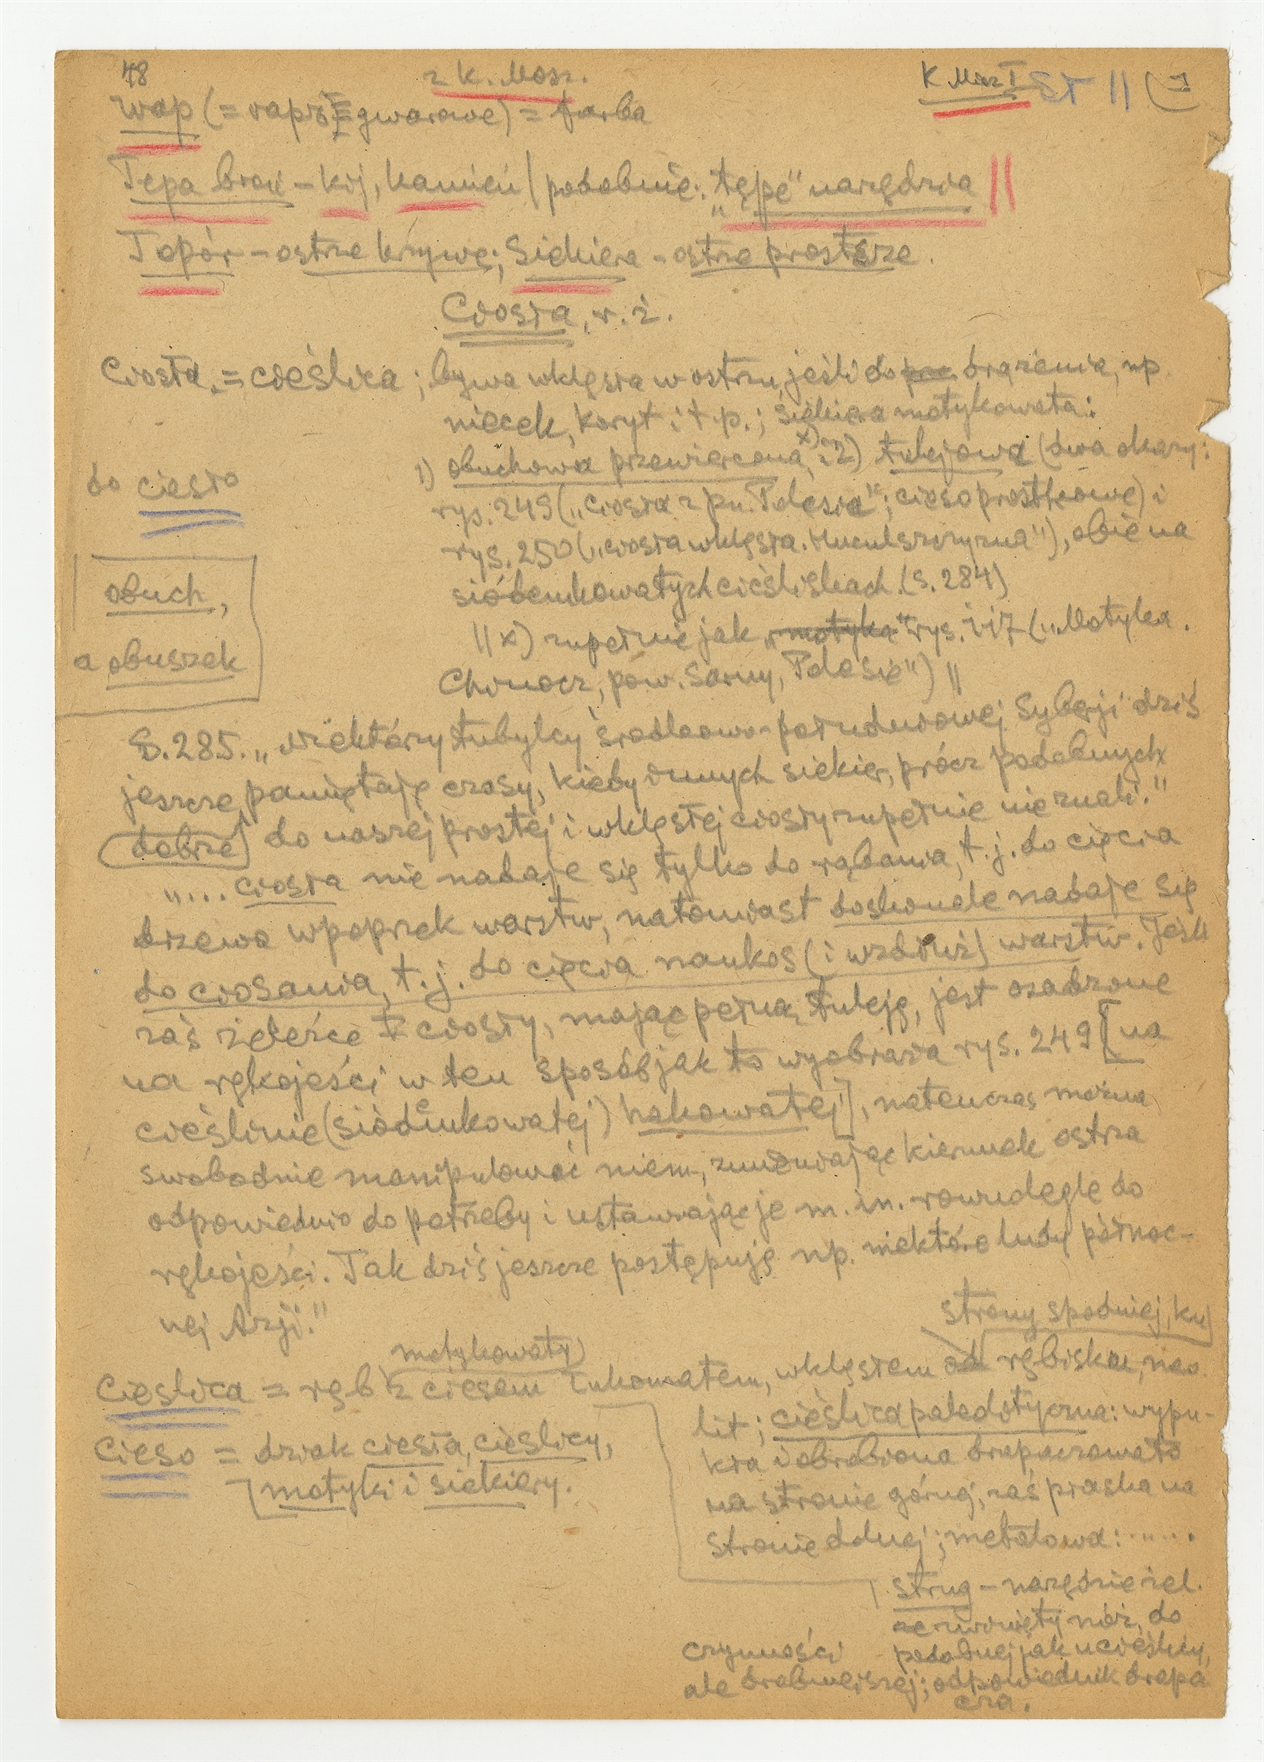 48
z K. Mosz.
K. Mosz I ST II
wap (= vapno gwarowe) = farba
Tępa broń - kij, kamień / podobnie: "tępe" narzędzia ||
Topór - ostrze krzywe; Siekiera - ostrze prostsze.
Ciosła, r. ż.
Ciosła = cieślica; bywa wklęsła w ostrzu, jeśli do brążenia, np.
niecek, koryt i t.p.; siekiera motykowata:
1) obuchowa przewiercona x) i 2) tulejowa (dwa okazy:
do ciesło
rys. 249 („ciosła z pn. Polesia"; cieso prostkowe) i
rys. 250 („ciosła wklęsła. Huculszczyzna"), obie na
siódemkowatych cieśliskach (s. 284)
obuch,
a obuszek
|| x) zupełnie jak „motyka" rys. 117 („Motyka.
Chinocz, pow. Sarny, Polesie") ||
S. 285. „Niektórzy tubylcy środkowo-południowej Syberji dziś
jeszcze pamiętają czasy, kiedy innych siekier, prócz podobnych
(dobrze) do naszej prostej i wklęsłej ciosły zupełnie nie znali."
"... ciosła nie nadaje się tylko do rąbania, t.j. do cięcia
drzewa wpoprzek warstw, natomiast doskonale nadaje się
do ciosania, t.j. do cięcia naukos (i wzdłuż) warstw. Jeśli
zaś żeleźce ciosły, mające pełną tuleję, jest osadzone
na rękojeści w ten sposób jak to wyobraża rys. 249 [na
cieślinie (siódemkowatej) hakowatej], natenczas można
swobodnie manipulować niem, zmieniając kierunek ostrza
odpowiednio do potrzeby i ustawiając je m. in. równolegle do
rękojeści. Tak dziś jeszcze postępują np. niektóre ludy północ-
nej Azji."
strony spodniej, ku
motykowaty
Cieślica = rąb z ciesem łukowatem, wklęsłem od rębiska, neo
lit; cieślica paleolityczna: wypu-
kła i obrobiona drapaczowato
na stronie górnej, zaś płaska na
stronie dolnej; metalowa: .....
Cieso = dziak ciesła, cieślicy,
motyki i siekiery.
strug - narzędzie żel.
ze zwinięty nóż, do
czynności podobnej jak u cieślicy,
ale drobniejszej; odpowiednik drapa
cza.